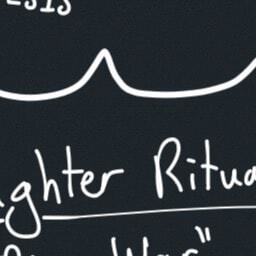 ESIS
ghter Ritua
War"